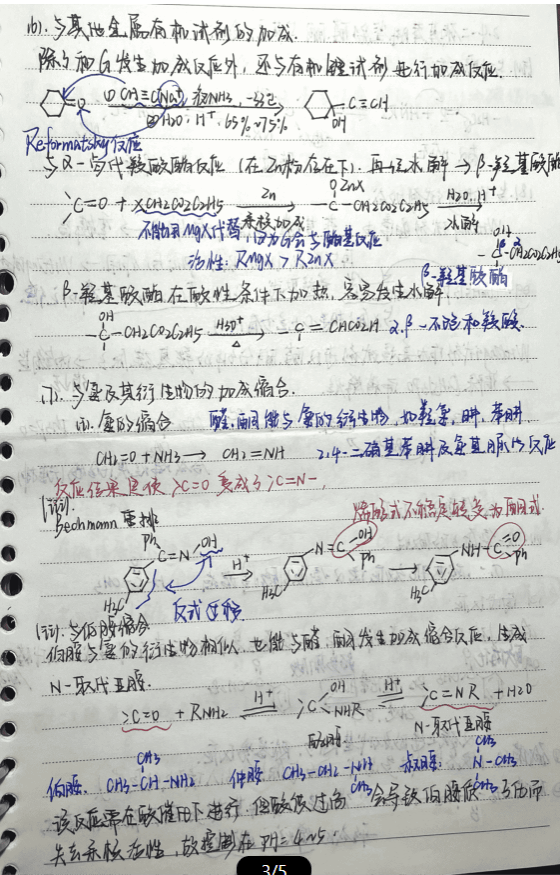 (6). 与其他金属有机试剂的加成.
除了和G发生加成反应外, 还与有机锂试剂进行加成反应.
① CH≡CNa⁺, 液NH3, -33℃
② H2O, H⁺, 65%~75%
C≡CH
OH
Reformatsky反应
与α-卤代羧酸酯反应 (在Zn粉存在下). 再经水解 → β-羟基酸酯
>C=O + XCH2CO2C2H5 Zn 亲核加成 OZnX -C-CH2CO2C2H5 H2O, H⁺ 水解
OH
-C-CH2CO2C2H5
不能用MgX代替, 因为G会与酯基反应
活性: RMgX > RZnX
β-羟基酸酯
β-羟基酸酯在酸性条件下加热, 容易发生水解
OH
-C-CH2CO2C2H5 H3O⁺ △ C=CHCO2H α.β-不饱和羧酸.
(7). 与氨及其衍生物的加成缩合.
(i). 氨的缩合 醛.酮能与氨的衍生物, 如羟氨, 肼, 苯肼
CH2=O + NH3 → CH2=NH 2.4-二硝基苯肼及氨基脲的反应
反应结果是使 >C=O 变成了 >C=N-.
Bechmann 重排 烯醇式不稳定转变为酮式.
Ph C=N OH H3C H⁺ N=C OH Ph H3C → NH-C=O Ph H3C
反式迁移
与伯胺缩合
伯胺与氨的衍生物相似, 也能与醛.酮发生加成缩合反应, 生成
N-取代亚胺.
>C=O + RNH2 H⁺ >C OH NHR H⁺ >C=NR + H2O
醇胺 N-取代亚胺
伯胺. CH3 CH3-CH-NH2 仲胺 CH3-CH2-NH CH3 叔胺: CH3 N-CH3 CH3
该反应需在酸催化下进行, 但酸度过高 会导致伯胺
失去亲核活性, 故控制在PH=4~5.
3/5